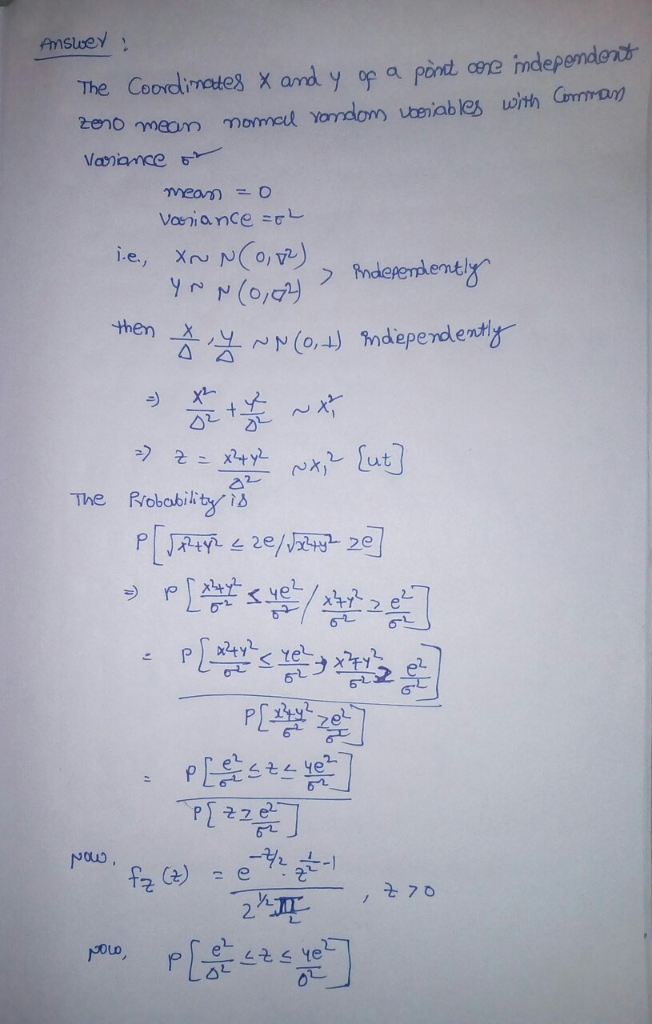 Answer :
The Coordinates X and y of a point are independent
zero mean normal random variables with Common
Variance σ²
mean = 0
Variance = σ²
i.e., X ~ N(0, σ²)
Y ~ N(0, σ²) > Independently
then X/σ, Y/σ ~ N(0, 1) Independently
⇒ X²/σ² + Y²/σ² ~ χ₁²
⇒ Z = X²+Y²/σ² ~ χ₁² [ut]
The Probability is
P[√X²+Y² ≤ 2e/√X²+Y² ≥ e]
⇒ P[X²+Y²/σ² ≤ 4e²/σ² / X²+Y²/σ² ≥ e²/σ²]
= P[X²+Y²/σ² ≤ 4e²/σ², X²+Y²/σ² ≥ e²/σ²]
P[X²+Y²/σ² ≥ e²/σ²]
= P[e²/σ² ≤ Z ≤ 4e²/σ²]
P[Z ≥ e²/σ²]
Now, f_Z(z) = e^(-z/2) · z^(1/2 - 1)
2^(1/2) , z > 0
Now, P[e²/σ² ≤ Z ≤ 4e²/σ²]